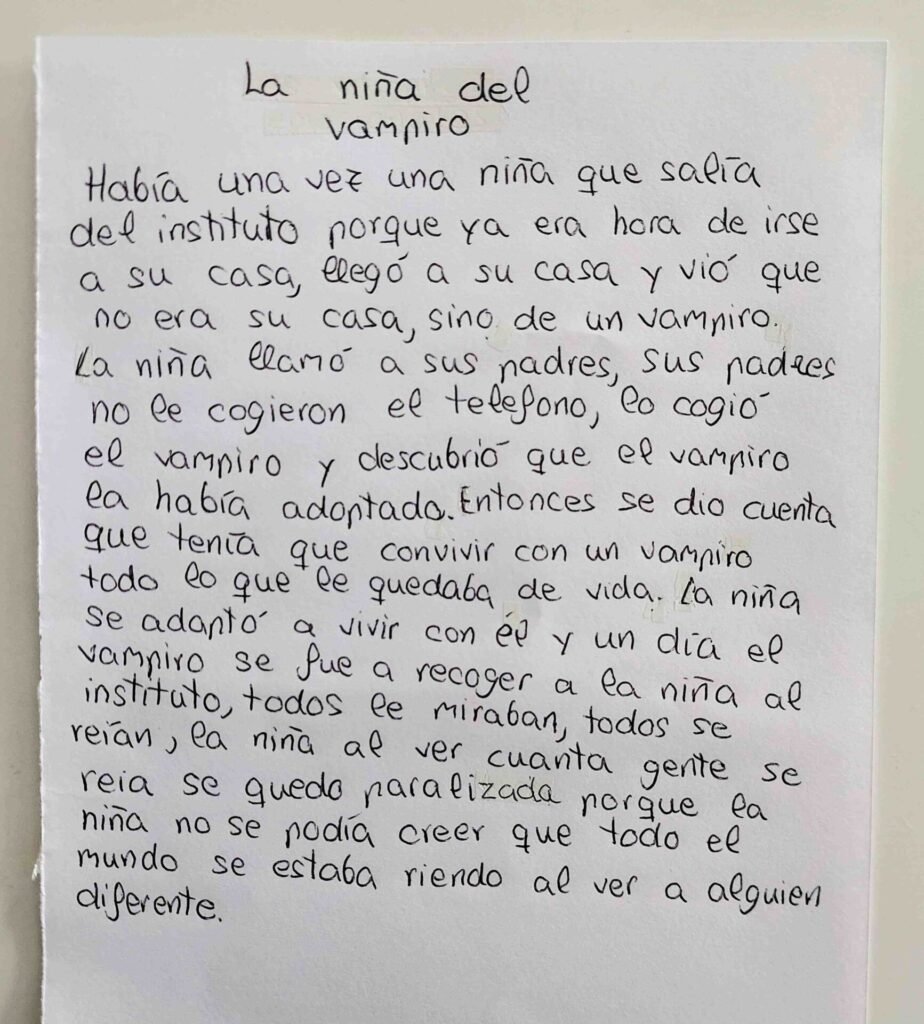 La niña del
vampiro
Había una vez una niña que salía
del instituto porque ya era hora de irse
a su casa, llegó a su casa y vió que
no era su casa, sino de un vampiro.
La niña llamó a sus padres, sus padres
no le cogieron el telefono, lo cogió
el vampiro y descubrió que el vampiro
la había adoptado. Entonces se dio cuenta
que tenía que convivir con un vampiro
todo lo que le quedaba de vida. La niña
se adaptó a vivir con él y un día el
vampiro se fue a recoger a la niña al
instituto, todos le miraban, todos se
reían, la niña al ver cuanta gente se
reia se quedo paralizada porque la
niña no se podía creer que todo el
mundo se estaba riendo al ver a alguien
diferente.